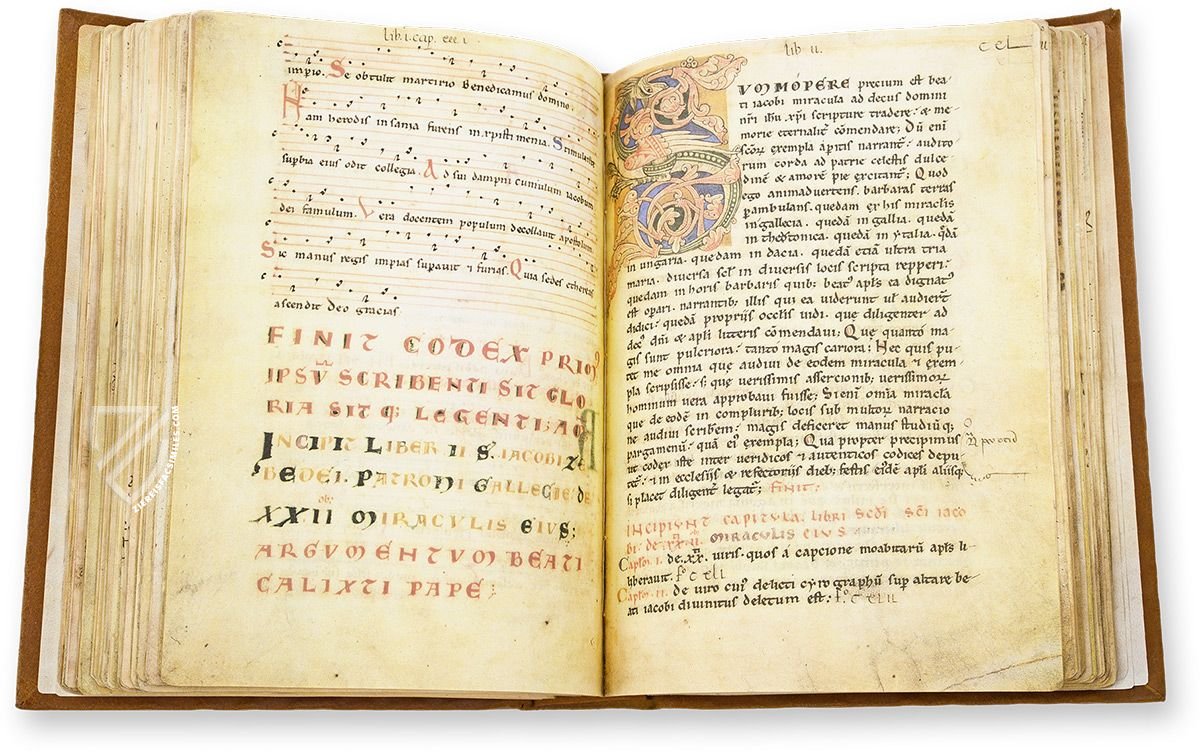 lib. i. cap.
impio. Se obtulit martirio Benedicamus domino.
Nam herodis insania furens in xpisti menia. Stimulatus
supbia eius odit collegia. Ad sui dampni cumulum iacobum
dei famulum. Vera docentem populum decollavit apostolum
Sic manus regis impias supavit & furias. Quia sedes ethereas
ascendit deo gracias.
FINIT CODEX PRIMꝰ
IPSŪ SCRIBENTI SIT GLO
RIA SIT Q; LEGENTI
INCIPIT LIBER II S. IACOBI ZE
BEDEI. PATRONI GALLECIE: DE
XXII MIRACULIS EIUS;
ARGUMENTUM BEATI
CALIXTI PAPE;
FINEARTFACSIMILES.COM
lib ii.
UMMOPERE precium est bea-
ti iacobi miracula ad decus domini
nr̄i ihu xp̄i scripture tradere: & me-
morie eternaliter com̄endare; Dū eni
scōꝝ exempla a peritis narrant: audito
rum corda ad patrie celestis dulce-
dinē & amorē pie excitant; Quod
ego animadvertens. barbaras terras
pambulans. quedam ex his miraclis
in gallecia. quedā in gallia. quedā
in theotonica. quedā in ytalia. qdā
in ungaria. quedam in dacia. quedā etiā ultra tria
maria. diversa scl̄ in diversis locis scripta repperi.
quedam in horis barbaris quib; beatꝰ apl̄s ea dignatꝰ
est opari. narrantib; illis qui ea viderunt ul̄ audiert
didici: quedā proprijs occlis vidi. que diligenter ad
decꝰ dn̄i & apl̄i litteris cōmendavi; Que quanto ma-
gis sunt pulcriora: tanto magis cariora; Nec quis pu-
tet me omnia que audivi de eodem miracula & exem-
pla scripsisse: s; que verissimis assercionib; verissimoꝝ
hominum vera approbavi fuisse; Si eni om̄ia miracla
que de eodē in complurib; locis sub multoꝝ narracio
ne audivi scribem: magis deficeret manus studiū q;
pargamenū: quā eiꝰ exempla; Qua propter precipimus
ut codex iste inter veridicos & autenticos codices depu-
tet: & in ecclesijs & refectorijs dieb; festis eiꝰdē apl̄i alijsq;
si placet diligent̄ legat; finit:
INCIPIUNT CAPITULA. LIBRI SEDI SC̄I IACO
BI: DE XXII. MIRACULIS EIUS
Capl̄m. i. de. xx. viris. quos a capcione moabitarū apl̄s li-
liberavit. fº c xli
Capl̄m. ii. de viro cuiꝰ delicti cyrographū sup altare be-
ati iacobi divinitus deletum est: fº. c xlii